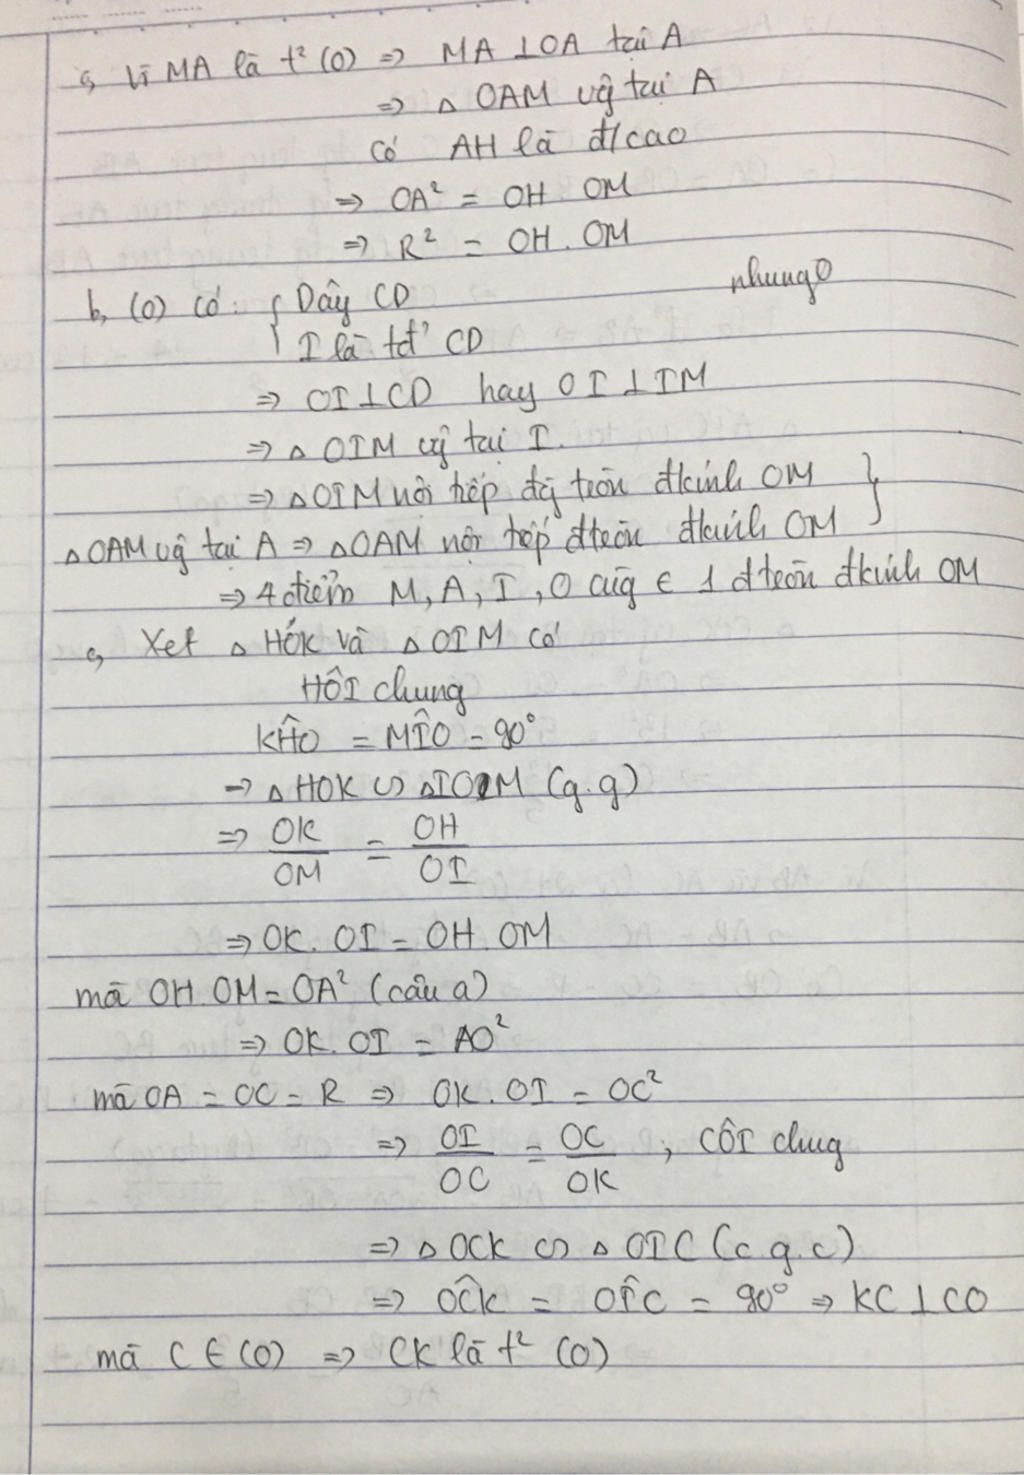 a, Vì MA là t² (O) => MA ⊥ OA tại A
=> △ OAM vg̃ tại A
Có AH là đ/cao
=> OA² = OH . OM
=> R² = OH . OM
b, (O) có : { Dây CD
nhung0
I là tđ' CD
=> OI ⊥ CD hay OI ⊥ IM
=> △ OIM vg̃ tại I.
=> △OIM nội tiếp đg̃ tròn đkính OM }
△OAM vg̃ tại A => △OAM nội tiếp đtròn đkính OM
=> 4 điểm M, A, I, O cùg ∈ 1 đtròn đkính OM
c, Xét △ HOK và △ OIM có
HÔI chung
KĤO = MÎO = 90°
=> △HOK ∽ △IOM (g.g)
=> OK/OM = OH/OI
=> OK. OI = OH. OM
mà OH.OM = OA² (câu a)
=> OK. OI = AO²
mà OA = OC = R => OK. OI = OC²
=> OI/OC = OC/OK ; CÔI chug
=> △ OCK ∽ △ OIC (c.g.c)
=> OĈK = OÎC = 90° => KC ⊥ CO
mà C ∈ (O) => CK là t² (O)